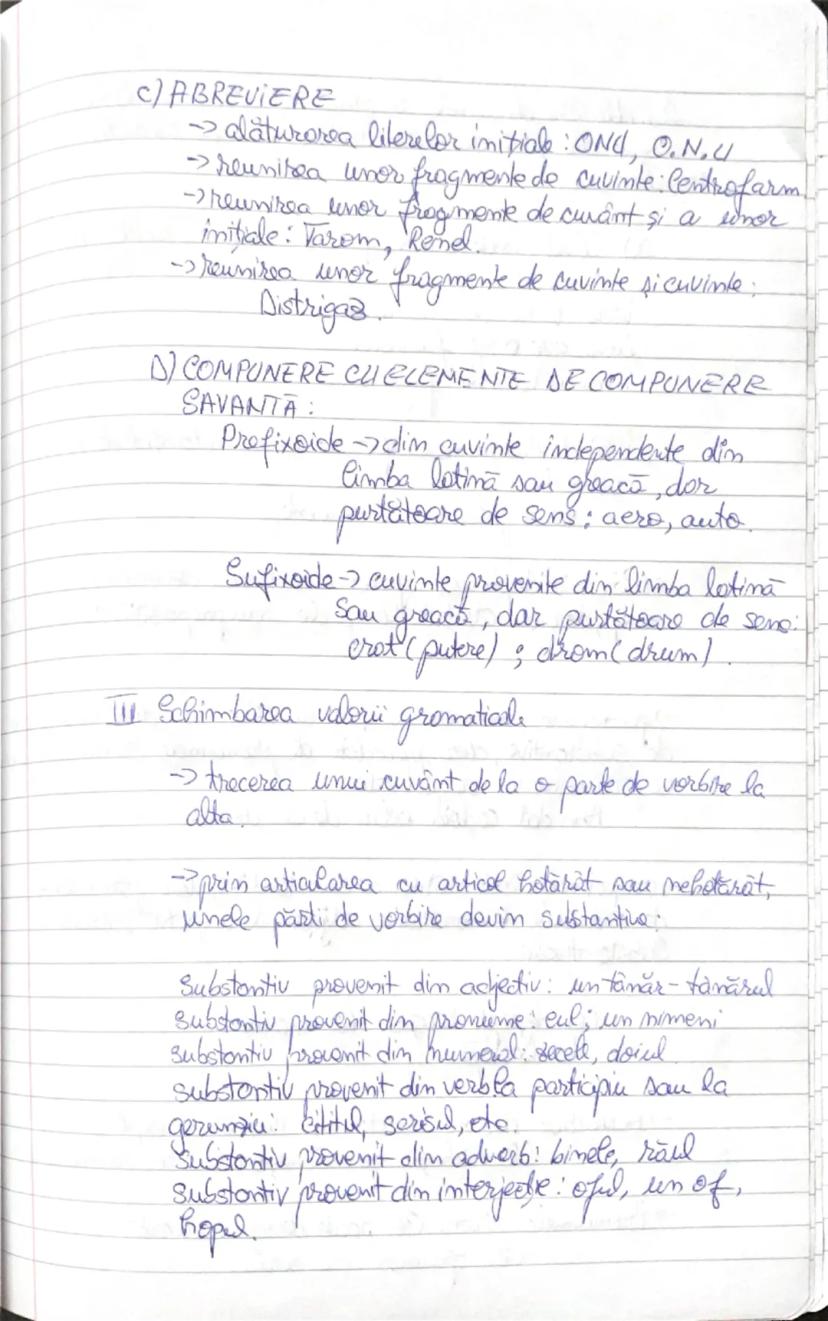 c) ABREVIERE
-> alăturarea literelor inițiale: ONU, O.N.U
-> reunirea unor fragmente de cuvinte: Centrofarm
-> reunirea unor fragmente de cuvânt și a unor
inițiale: Tarom, Renel.
-> reunirea unor fragmente de cuvinte și cuvinte:
Distrigaz.
D) COMPUNERE CU ELEMENTE DE COMPUNERE
SAVANTĂ:
Prefixoide -> din cuvinte independente din
limba latină sau greacă, dar
purtătoare de sens: aero, auto.
Sufixoide -> cuvinte provenite din limba latină
sau greacă, dar purtătoare de sens:
crat (putere) ; drom (drum).
III Schimbarea valorii gramaticale
-> trecerea unui cuvânt de la o parte de vorbire la
alta.
-> prin articularea cu articol hotărât sau nehotărât,
unele părți de vorbire devin substantive:
substantiv provenit din adjectiv: un tânăr - tânărul
substantiv provenit din pronume: eul; un nimeni
substantiv provenit din numeral: zecele, doiul
substantiv provenit din verb la participiu sau la
gerunziu: cititul, scrisul, etc
substantiv provenit din adverb: binele, răul
substantiv provenit din interjecție: oful, un of,
hopul.